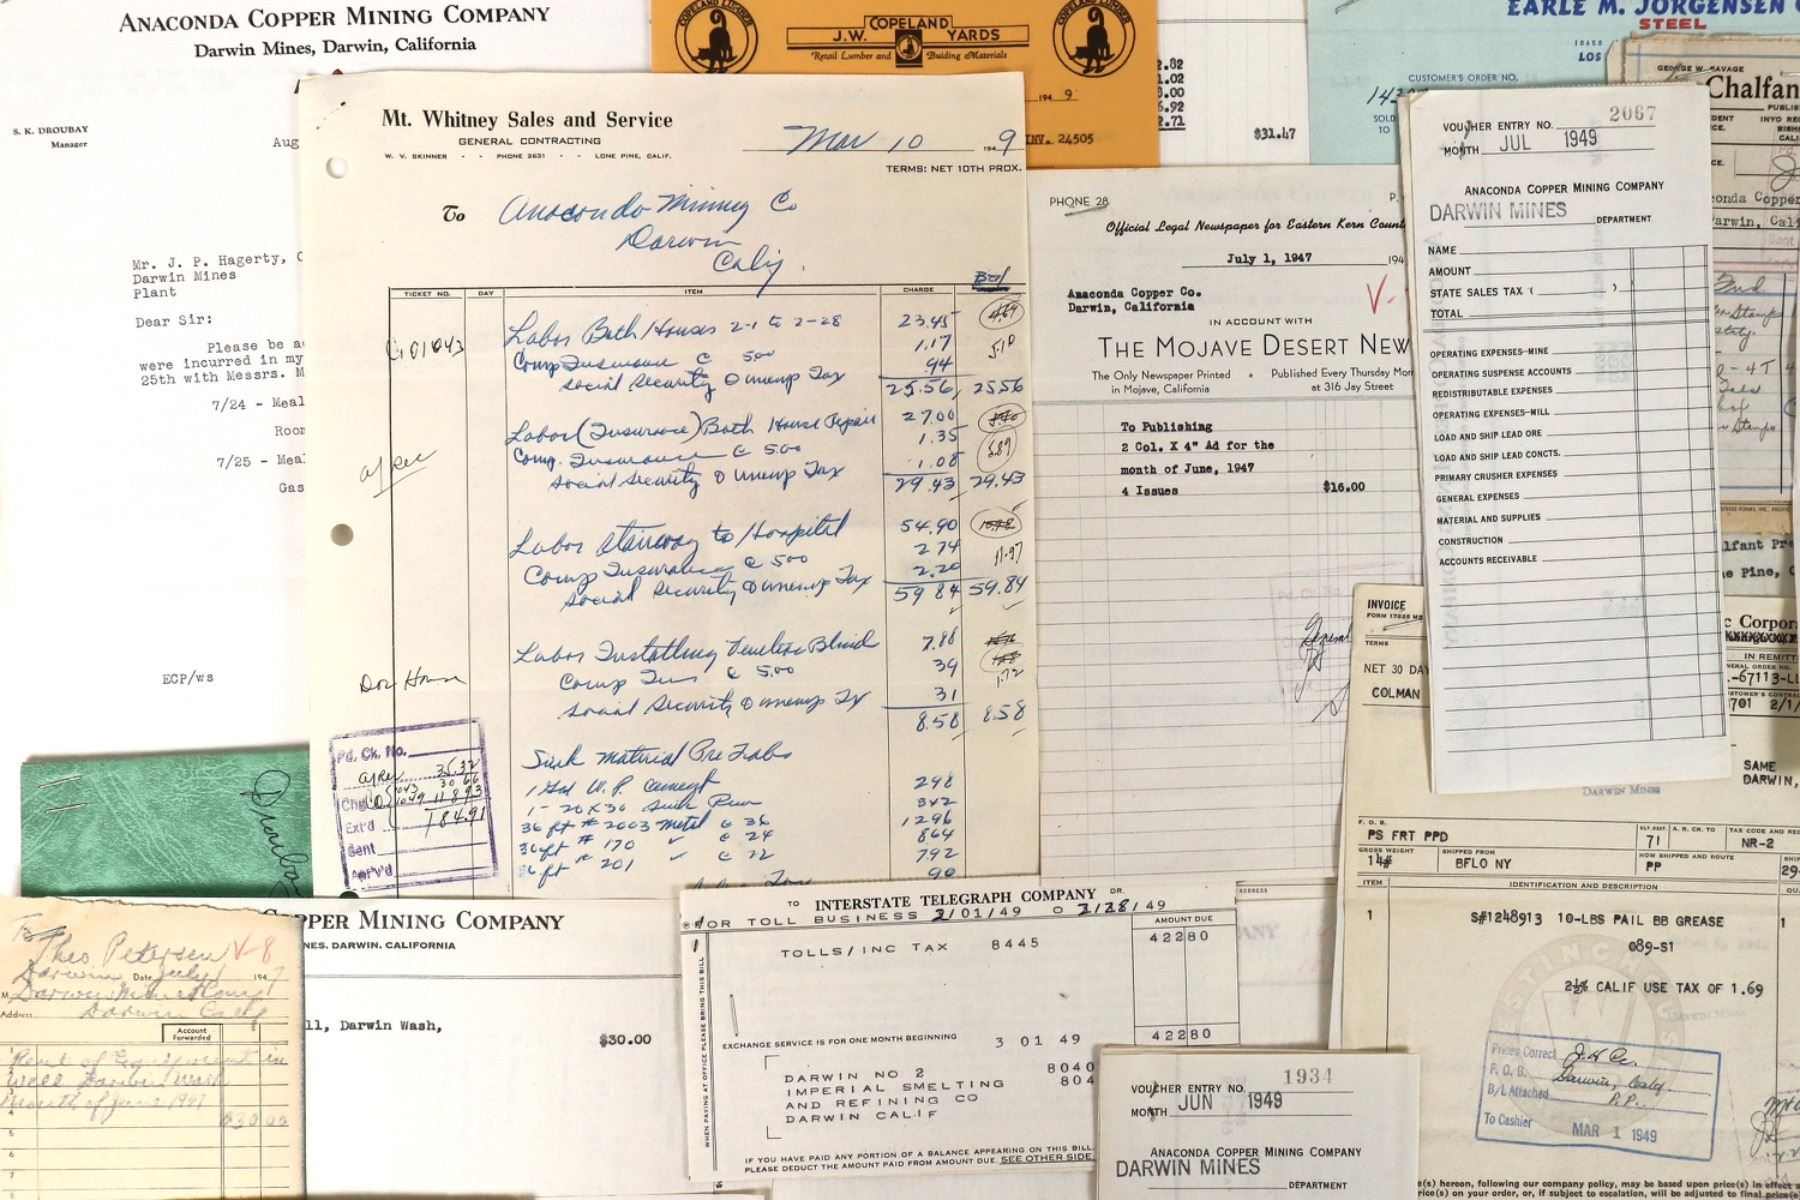 ANACONDA COPPER MINING COMPANY
Darwin Mines, Darwin, California
S. K. DROUBAY
Manager
Aug
Mr. J. P. Hagerty, C
Darwin Mines
Plant
Dear Sir:
Please be a
were incurred in my
25th with Messrs. M
7/24 - Meal
Room
7/25 - Meal
Gas
ECP/ws
COPELAND LUMBER
J.W. COPELAND YARDS
Retail Lumber and Building Materials
COPELAND LUMBER
194 9
INV. 24505
2.82
1.02
3.00
6.92
2.71
$31.47
EARLE M. JORGENSEN
STEEL
10650
LOS
CUSTOMER'S ORDER NO.
SOLD
TO
Mt. Whitney Sales and Service
GENERAL CONTRACTING
W. V. SKINNER - - PHONE 2631 - - LONE PINE, CALIF.
Mar 10 194 9
TERMS: NET 10TH PROX.
To Anaconda Mining Co
Darwin
Calif.
TICKET NO. DAY ITEM CHARGE Bal
Labor Bath Houses 2-1 to 2-28 23.45
Comp Insurance @ 500 1.17 5.10
Social Security & unemp Tax 94
25.56 25.56
Labor (Insurance) Bath House Repair 27.00
Comp. Insurance @ 5.00 1.35 5.89
Social Security & unemp Tax 1.08
29.43 29.43
Labor stairway to Hospital 54.90
Comp Insurance @ 500 2.74 11.97
Social Security & unemp Tax 2.20
59.84 59.84
Labor Installing Venetian Blind 7.88
Comp Ins @ 5.00 39 1.72
Social Security & unemp Tx 31
8.58 8.58
Sink material Pre Fabs
1 Gal W.P. Cement 298
1- 20x30 Sink Rim 342
36 ft # 2003 metal @ 36 1296
36 ft # 170 ✓ @ 24 864
36 ft # 201 ✓ @ 22 792
90
Pd. Ck. No.
35.32
30.66
118.93
184.91
Ext'd
Sent
Apr'v'd
PHONE 28
Official Legal Newspaper for Eastern Kern Count
July 1, 1947 194
Anaconda Copper Co.
Darwin, California
IN ACCOUNT WITH
THE MOJAVE DESERT NEW
The Only Newspaper Printed • Published Every Thursday Morn
in Mojave, California at 316 Jay Street
To Publishing
2 Col. X 4" Ad for the
month of June, 1947
4 Issues $16.00
VOUCHER ENTRY NO. 2067
MONTH JUL 1949
ANACONDA COPPER MINING COMPANY
DARWIN MINES DEPARTMENT
NAME
AMOUNT
STATE SALES TAX ( )
TOTAL
OPERATING EXPENSES-MINE
OPERATING SUSPENSE ACCOUNTS
REDISTRIBUTABLE EXPENSES
OPERATING EXPENSES-MILL
LOAD AND SHIP LEAD ORE
LOAD AND SHIP LEAD CONCTS.
PRIMARY CRUSHER EXPENSES
GENERAL EXPENSES
MATERIAL AND SUPPLIES
CONSTRUCTION
ACCOUNTS RECEIVABLE
GEORGE W. SAVAGE
Chalfan
PUBLIS
INYO REG
BISH
CALI
conda Copper
arwin, Cali
lfant Pr
e Pine, C
c Corpor
IN REMITT
-67113-LL
701 2/1/
SAME
DARWIN,
INVOICE
TERMS
NET 30 DAY
COLMAN
DARWIN MINES
F. O. B.
PS FRT PPD
71
A. R. CR. TO
TAX CODE AND REG
NR-2
GROSS WEIGHT
14#
SHIPPED FROM
BFLO NY
HOW SHIPPED AND ROUTE
PP
29-
ITEM IDENTIFICATION AND DESCRIPTION
1 S#1248913 10-LBS PAIL BB GREASE 1
089-S1
2½% CALIF USE TAX OF 1.69
Prices Correct
F. O. B. Darwin, Calif
B/L Attached P.P.
To Cashier
MAR 1 1949
e(s) hereon, following our company policy, may be based upon price(s) in effect
rice(s) on your order, or, if subject to escalation, will be adjusted to final price(s
To Theo Petersen V-8
Darwin Date July 1 1947
Darwin Mines
Address Darwin Calif
Account
Forwarded
Rent of Equipment in
Well Darwin Wash
Month of June 1947
$30.00
OPPER MINING COMPANY
NES, DARWIN, CALIFORNIA
ll, Darwin Wash,
$30.00
TO INTERSTATE TELEGRAPH COMPANY DR.
FOR TOLL BUSINESS 2/01/49 O 2/28/49
AMOUNT DUE
TOLLS/INC TAX 8445 42280
42280
EXCHANGE SERVICE IS FOR ONE MONTH BEGINNING 3 01 49
DARWIN NO 2 8040
IMPERIAL SMELTING 804
AND REFINING CO
DARWIN CALIF
WHEN PAYING AT OFFICE PLEASE BRING THIS BILL
IF YOU HAVE PAID ANY PORTION OF A BALANCE APPEARING ON THIS BILL
PLEASE DEDUCT THE AMOUNT PAID FROM AMOUNT DUE. SEE OTHER SIDE
VOUCHER ENTRY NO. 1934
MONTH JUN 1949
ANACONDA COPPER MINING COMPANY
DARWIN MINES
DEPARTMENT